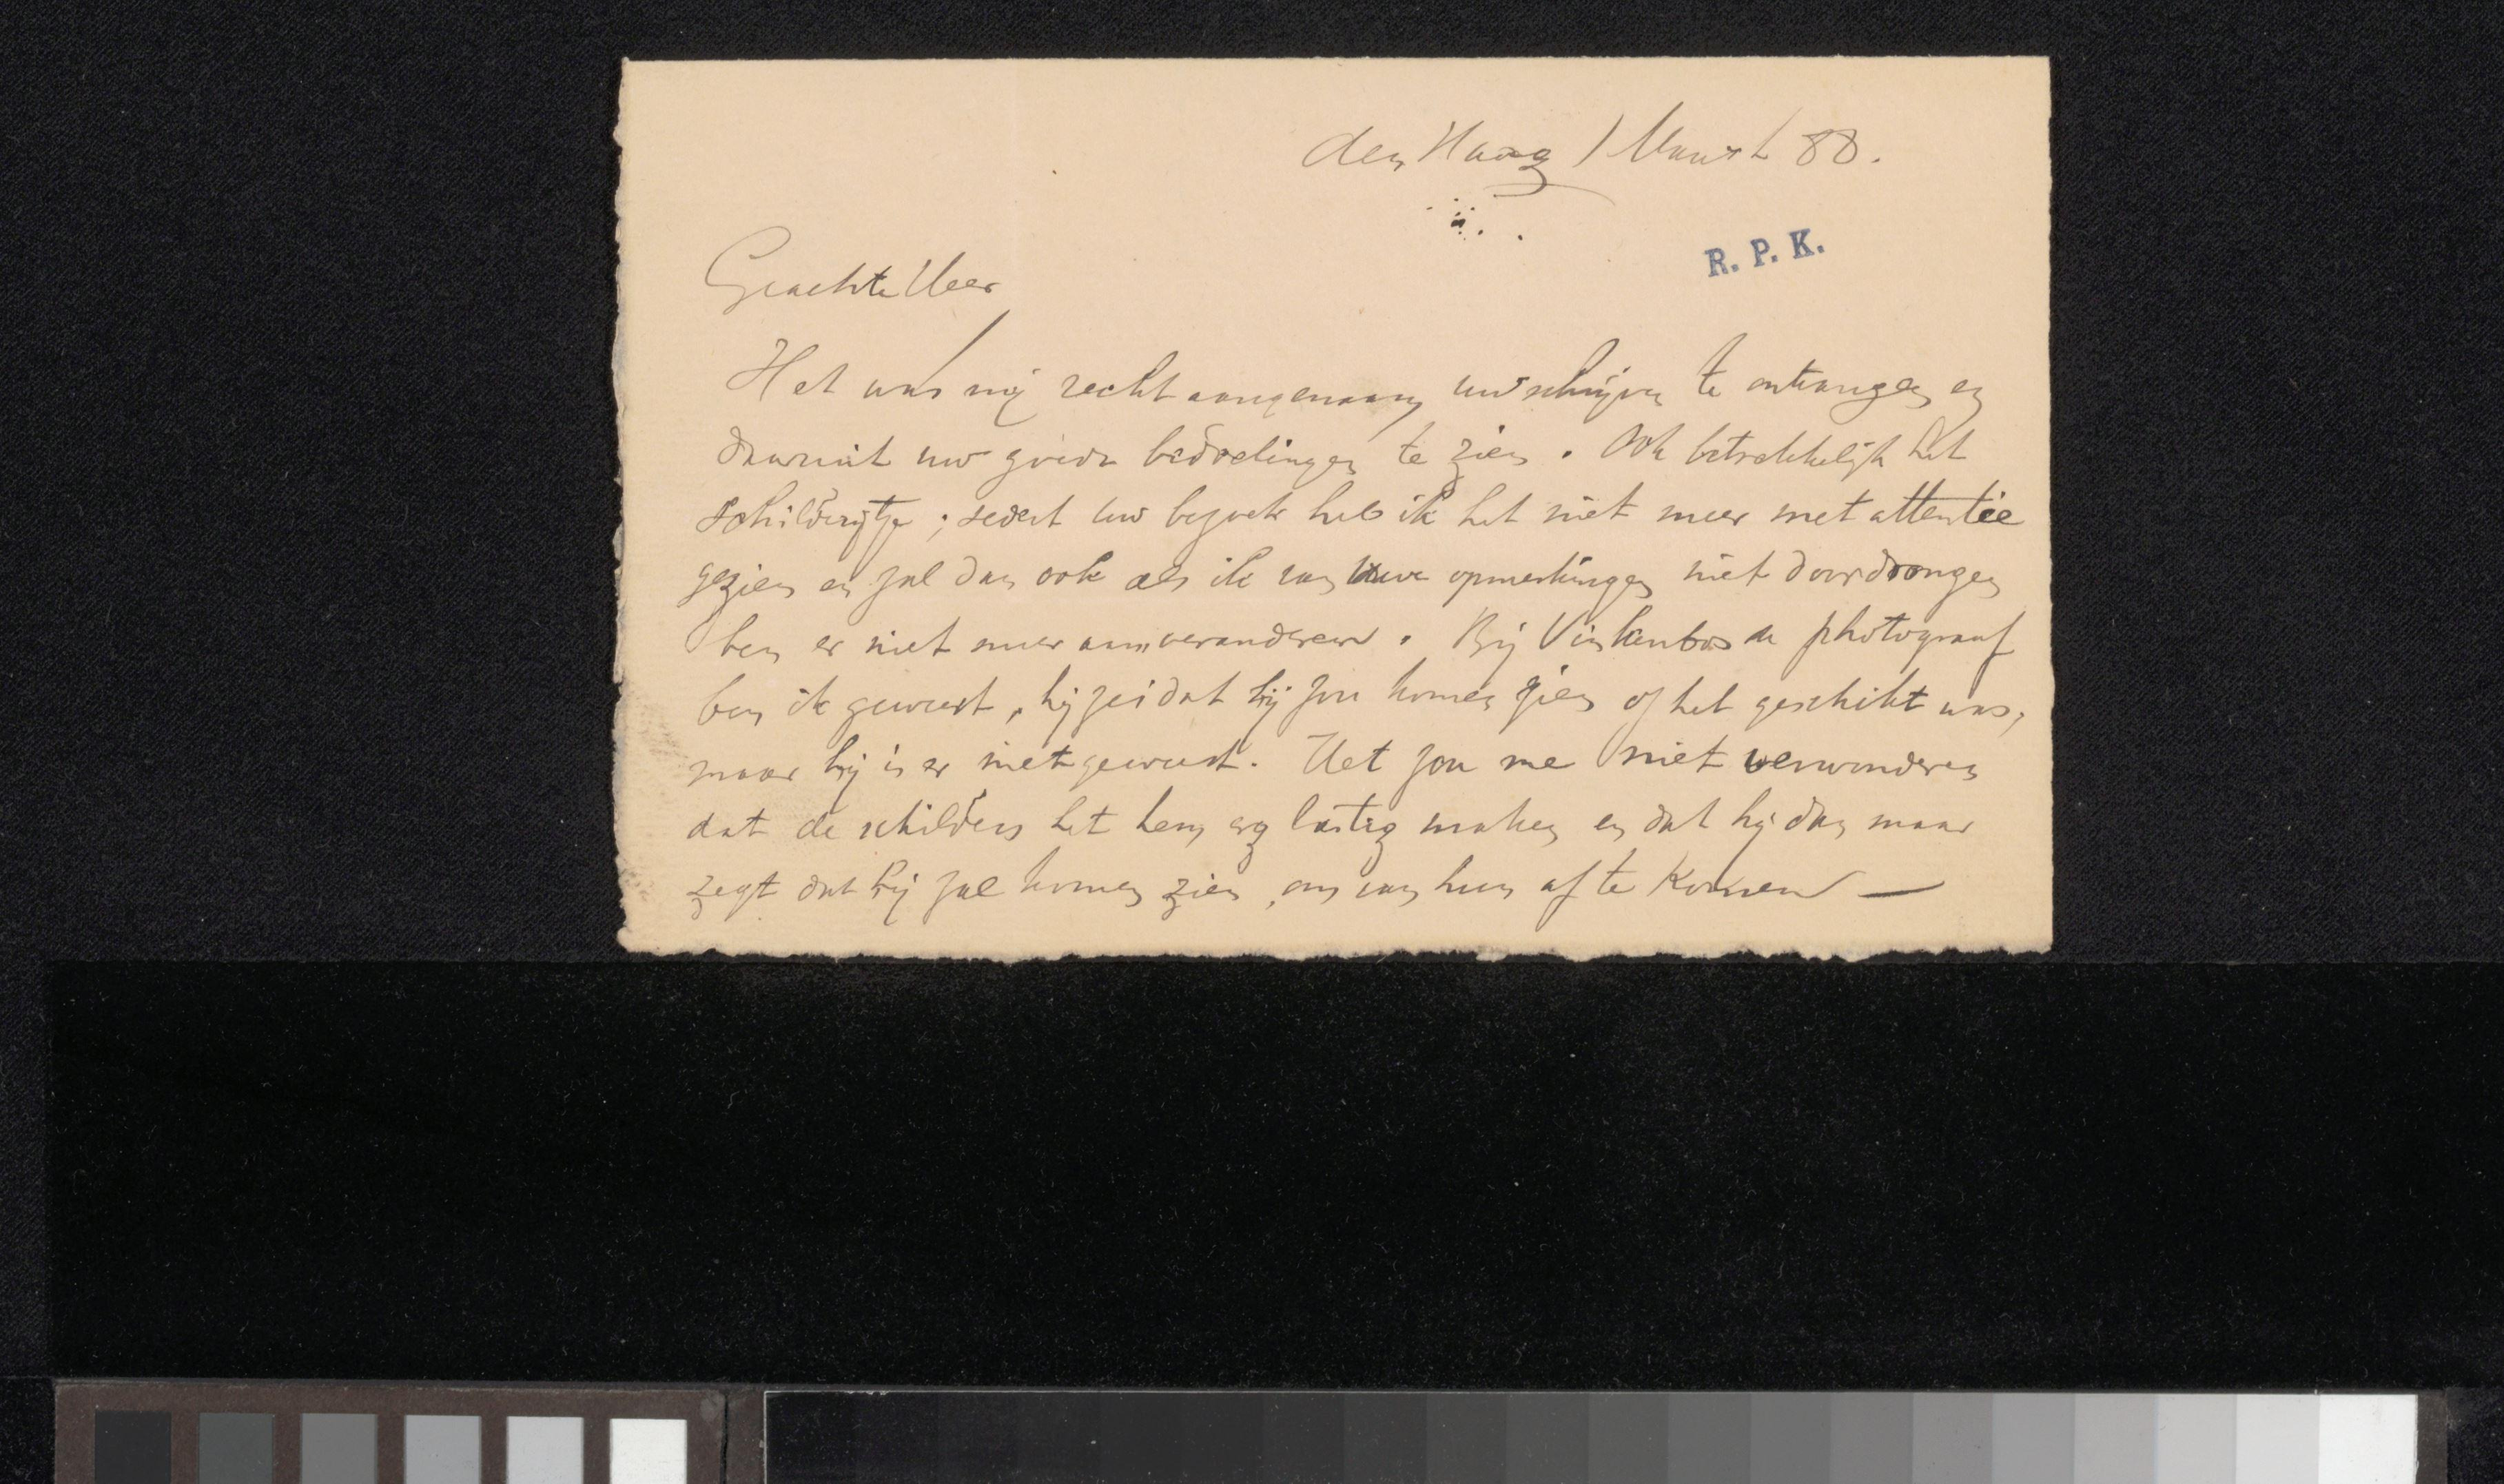 den Haag 1 Maart 88.
R. P. K.
Geachte Heer
Het was mij recht aangenaam uw schrijven te ontvangen en
daaruit uw goede bedoelingen te zien. Ook betrekkelijk het
schilderijtje; sedert uw bezoek heb ik het niet meer met attentie
gezien en zal dan ook als ik van uwe opmerkingen niet doordrongen
ben er niet meer aan veranderen. Bij Vinkenbos de photograaf
ben ik geweest, hij zei dat hij zou komen zien of het geschikt was,
maar hij is er niet geweest. Het zou me niet verwonderen
dat de schilders het hem erg lastig maken en dat hij dan maar
zegt dat hij zal komen zien, om van hun af te komen —